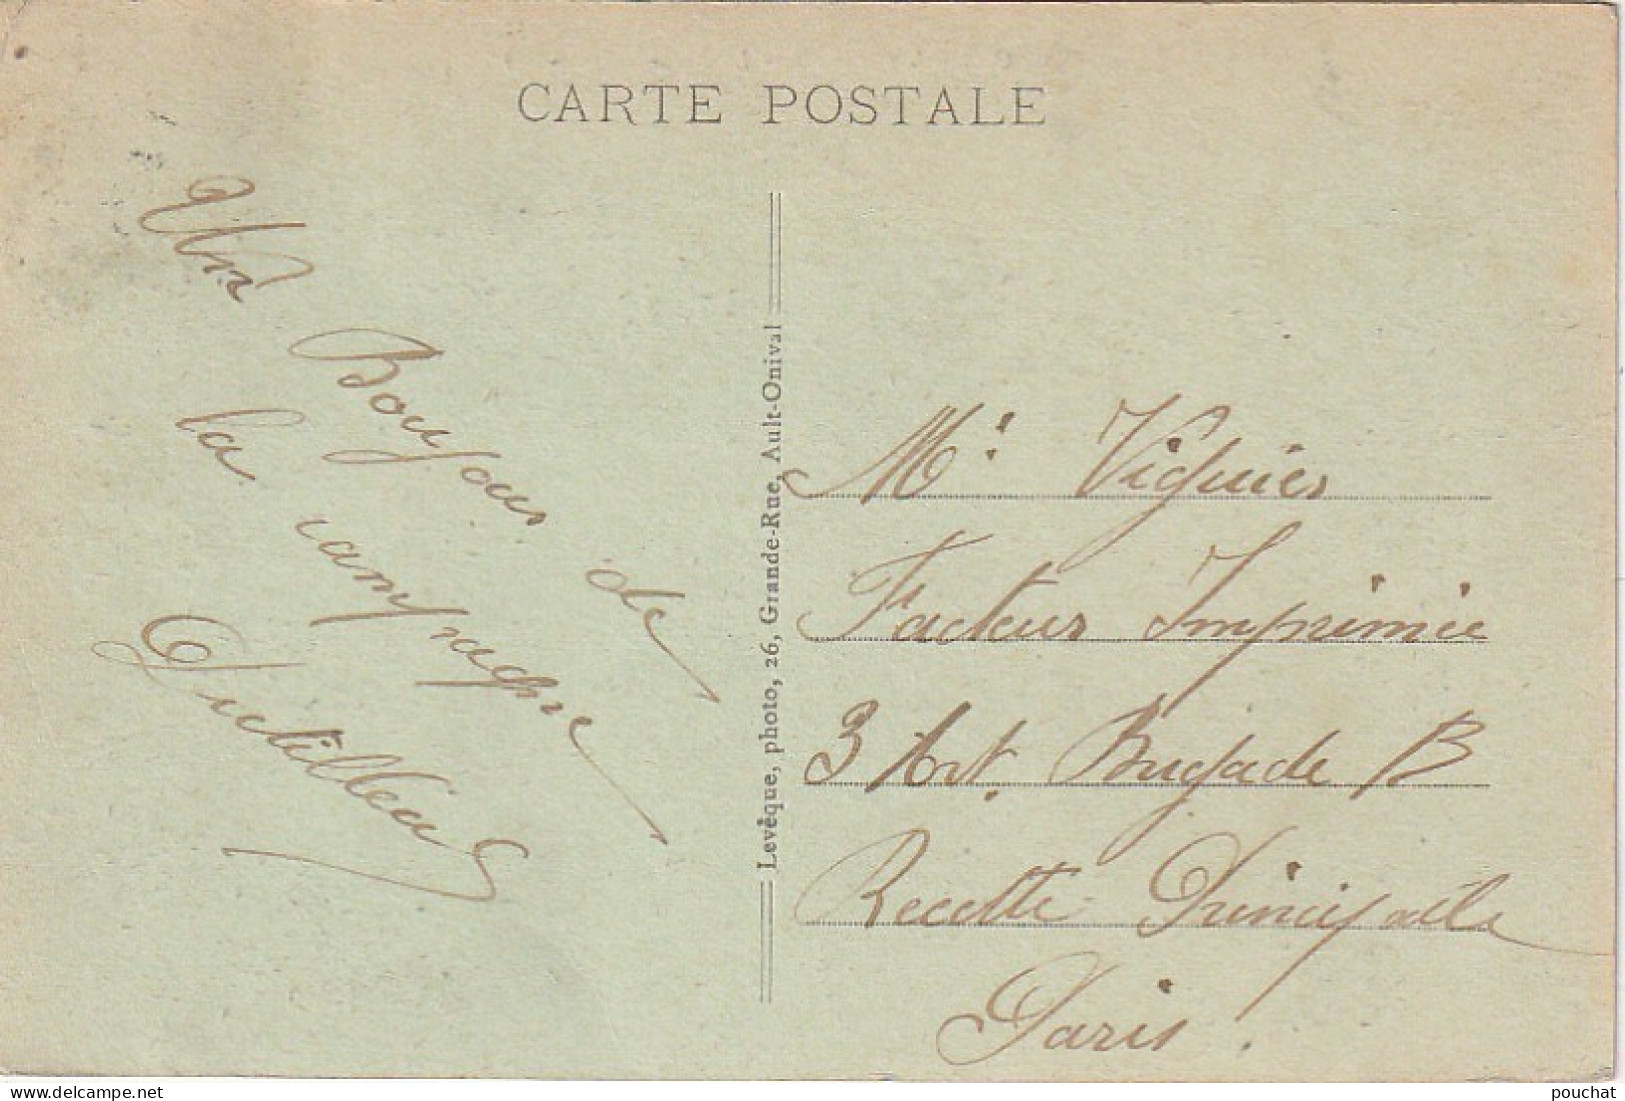 CARTE POSTALE
Un Boujour de
la campagne
Dutilleul
Levêque, photo, 26, Grande-Rue, Ault-Onival
Mr Viguier
Facteur Imprimée
3 Art. Brigade B
Recette Principalle
Paris.
delcampe.net
pouchat